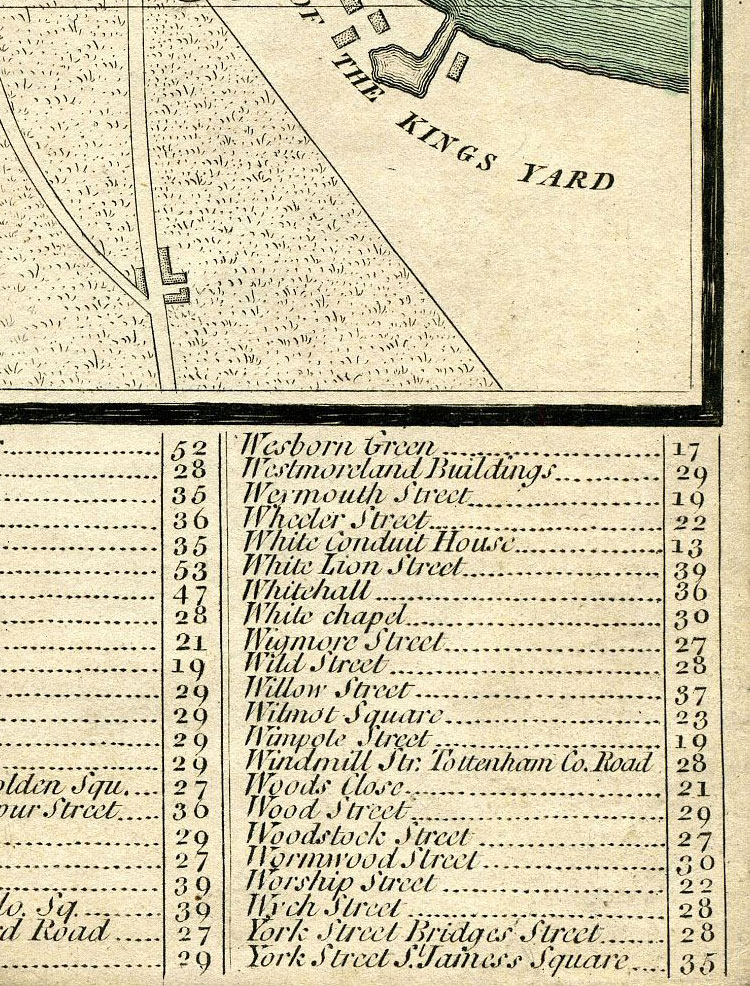 OF
THE KINGS YARD
52
28
35
36
35
53
47
28
21
19
29
29
29
29
olden Squ. 27
our Street 36
29
27
39
lo. Sq. 39
rd Road 27
29
Wesborn Green 17
Westmoreland Buildings 29
Weymouth Street 19
Wheeler Street 22
White Conduit House 13
White Lion Street 39
Whitehall 36
White chapel 30
Wigmore Street 27
Wild Street 28
Willow Street 37
Wilmot Square 23
Wimpole Street 19
Windmill Str. Tottenham Co. Road 28
Woods Close 21
Wood Street 29
Woodstock Street 27
Wormwood Street 30
Worship Street 22
Wych Street 28
York Street Bridges Street 28
York Street S.t Jamess Square 35